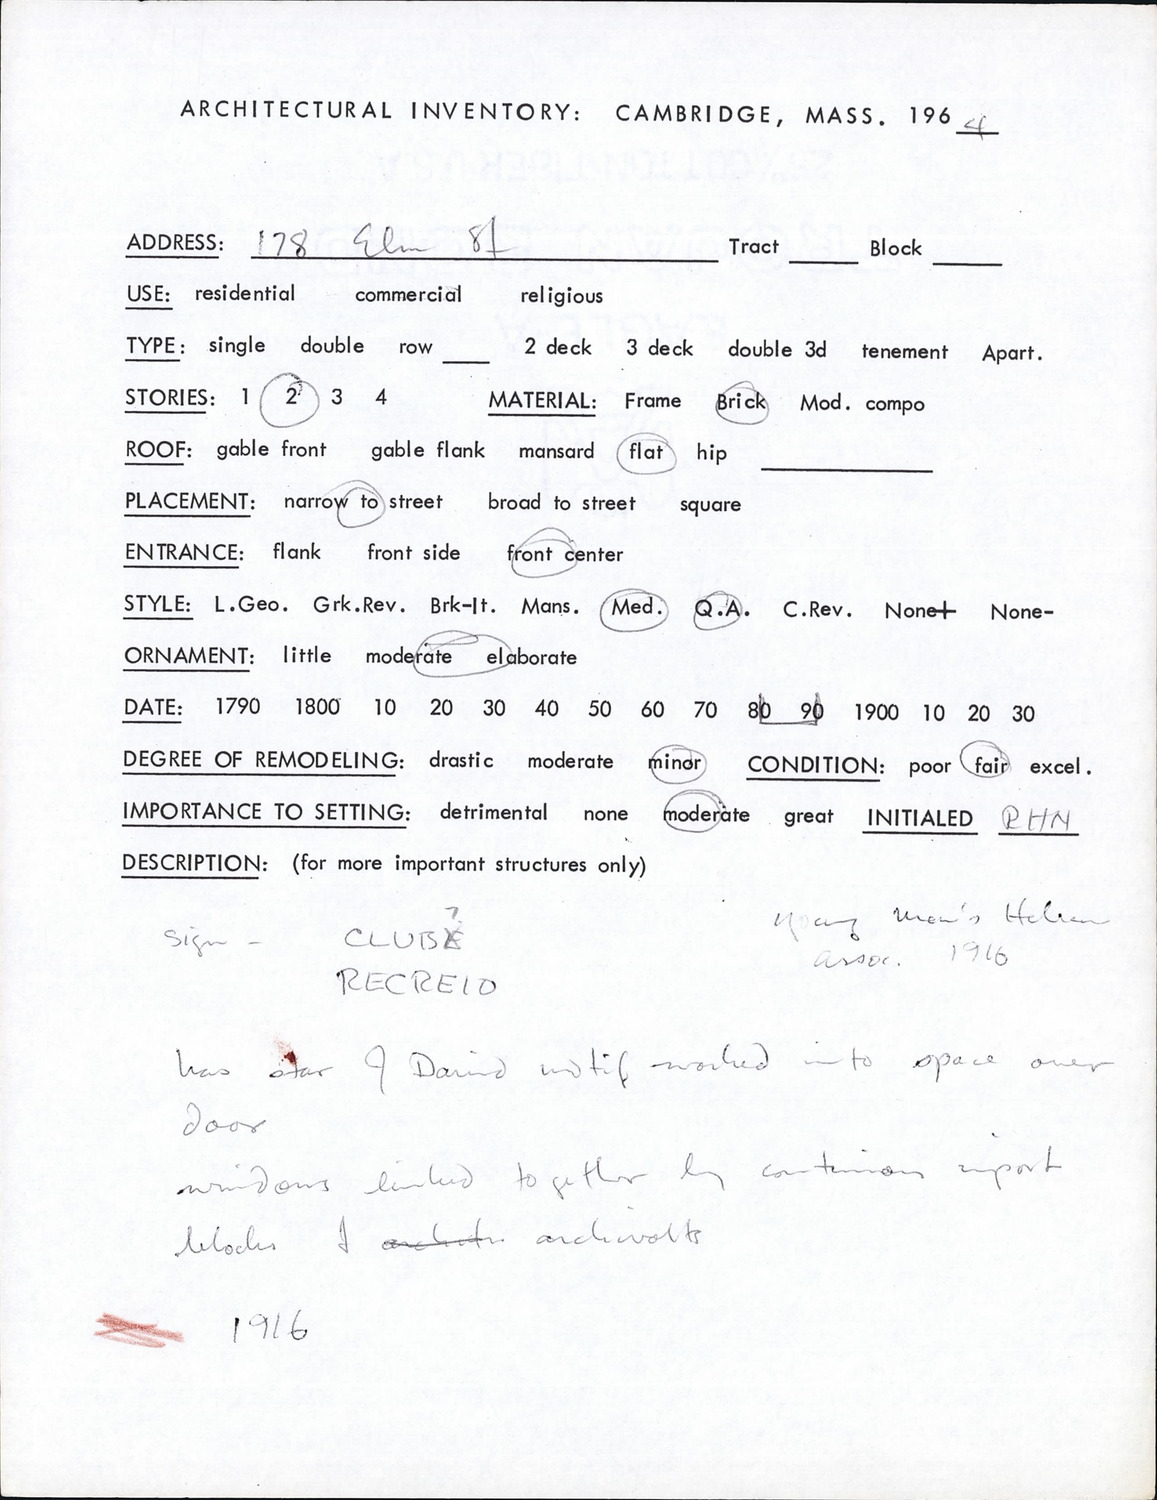 ARCHITECTURAL INVENTORY: CAMBRIDGE, MASS. 1964
ADDRESS: 178 Elm St Tract ____ Block ____
USE: residential commercial religious
TYPE: single double row ____ 2 deck 3 deck double 3d tenement Apart.
STORIES: 1 2 3 4 MATERIAL: Frame Brick Mod. compo
ROOF: gable front gable flank mansard flat hip ____
PLACEMENT: narrow to street broad to street square
ENTRANCE: flank front side front center
STYLE: L.Geo. Grk.Rev. Brk-It. Mans. Med. Q.A. C.Rev. None+ None-
ORNAMENT: little moderate elaborate
DATE: 1790 1800 10 20 30 40 50 60 70 80 90 1900 10 20 30
DEGREE OF REMODELING: drastic moderate minor CONDITION: poor fair excel.
IMPORTANCE TO SETTING: detrimental none moderate great INITIALED RHN
DESCRIPTION: (for more important structures only)
Sign - CLUBE? Young Men's Hebrew
RECREIO Assoc. 1916
has star of David motif worked into space over
door
windows linked together by continuous import
blocks & archivolts
1916